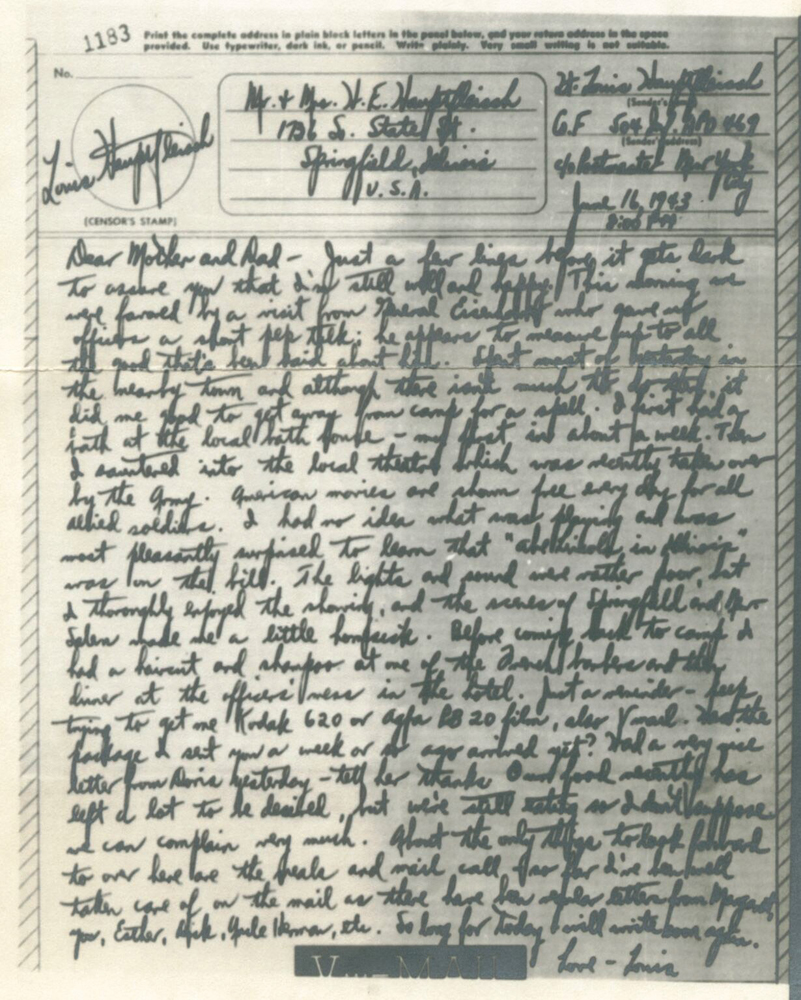 1183
Print the complete address in plain block letters in the panel below, and your return address in the space
provided. Use typewriter, dark ink, or pencil. Write plainly. Very small writing is not suitable.
No.
Louis Hauptfleisch
(CENSOR'S STAMP)
Mr. + Mrs. W. E. Hauptfleisch
1736 So. State St.
Springfield, Illinois
U.S.A.
Lt. Louis Hauptfleisch
(Sender's name)
504 APO 469
(Sender's address)
c/o Postmaster New York
City
June 16, 1943
Dear Mother and Dad - Just a few lines before it gets dark
to assure you that I'm still well and happy. This morning we
were favored by a visit from General Eisenhower who gave us
officers a short pep talk; he appears to measure up to all
the good that's been said about him. Spent most of yesterday in
the nearby town and although there isn't much to do there, it
did me good to get away from camp for a spell. I first had a
bath at the local bath house - my first in about a week. Then
I sauntered into the local theatre which was recently taken over
by the Army. American movies are shown free every day for all
allied soldiers. I had no idea what was playing and was
most pleasantly surprised to learn that "Abe Lincoln in Illinois"
was on the bill. The lights and sound were rather poor, but
I thoroughly enjoyed the showing, and the scenes of Springfield and New
Salem made me a little homesick. Before coming back to camp I
had a haircut and shampoo at one of the French barbers and then
dinner at the officers' mess in the hotel. Just a reminder - keep
trying to get me Kodak 620 or Agfa PB 20 film, also Vmail. Has the
package I sent you a week or so ago arrived yet? Had a very nice
letter from Doris yesterday - tell her thanks. Our food recently has
left a lot to be desired, but we're still eating so I don't suppose
we can complain very much. About the only things to look forward
to over here are the meals and mail call, & so far I've been well
taken care of on the mail as there have been regular letters from Margaret,
you, Esther, Dick, Uncle Herman, etc. So long for today & will write soon again.
Love - Louis
V - MAIL